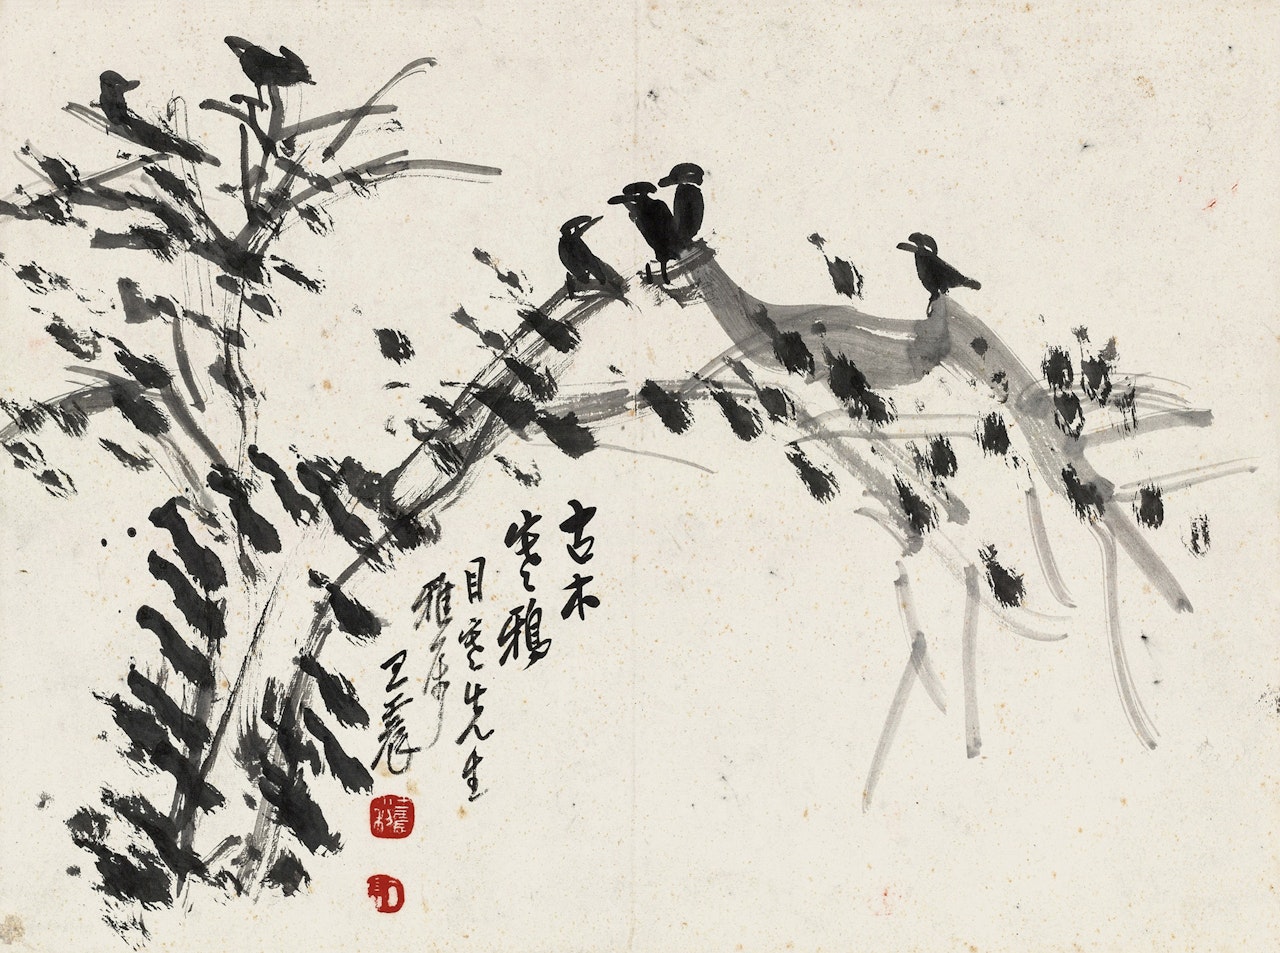 古木
寒鴉
目寒先生
雅屬
王震